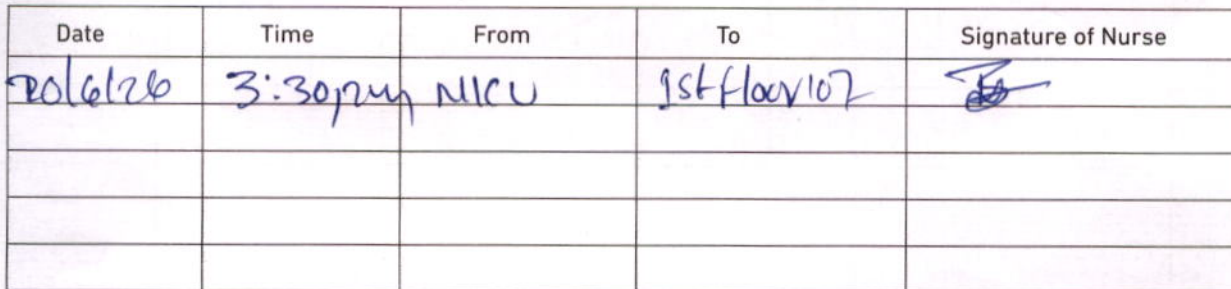 Date Time From To Signature of Nurse
20/6/26 3:30pm NICU 1st floor 107